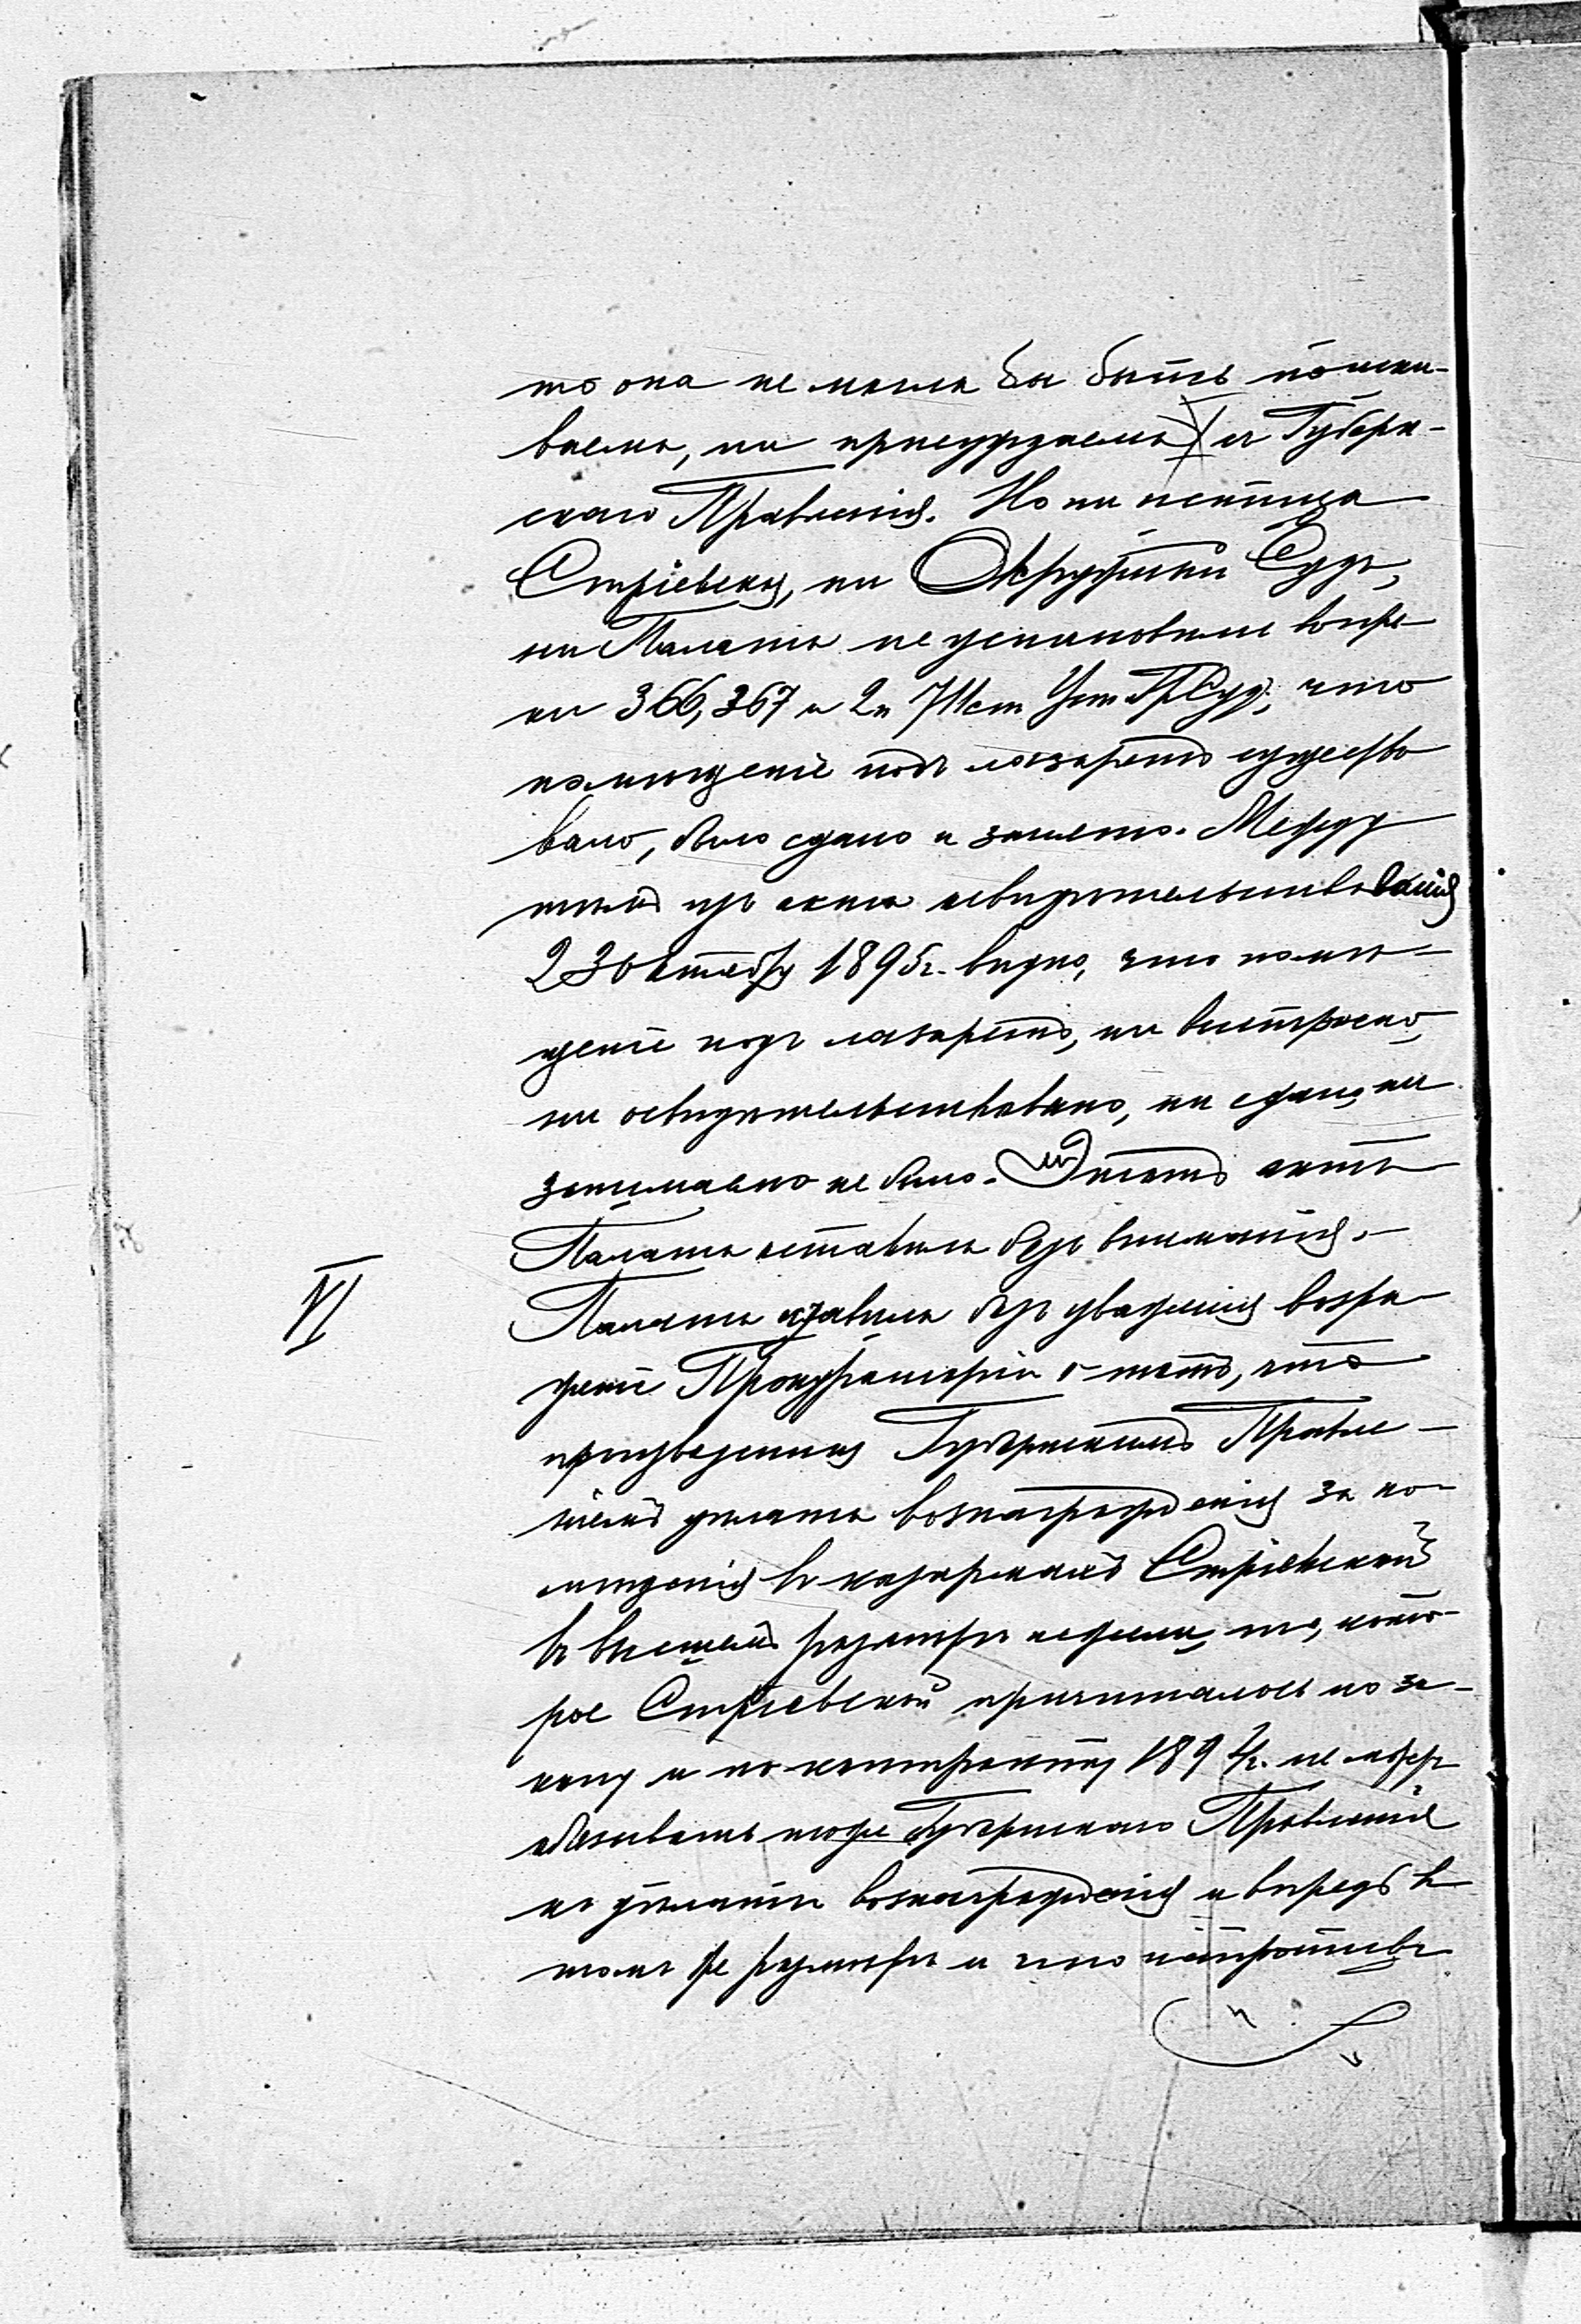 то она не могла бы быть поиски-
ваема, ни присуждаема съ Губерн-
скаго Правленія. Но ни истица
Стріевская, ни Окружный Судъ,
ни Палата не установили вопре-
ки 366, 367 и 2 п 711 ст Уст Гр Суд., что
помѣщеніе подъ лазаретъ существо
вало, было сдано и занято. Между
тѣмъ изъ акта освидѣтельствованія
23 октября 1895 г. видно, что помѣ-
щеніе подъ лазаретъ, ни выстроено,
ни освидѣтельствовано, ни сдано, ни
занимаемо не было. Этотъ актъ
Палата оставила безъ вниманія.
VI
Палата оставила безъ уваженія возра-
женіе Прокуратеріи о томъ, что
произведенная Губернскимъ Правле-
ніемъ уплата вознагражденія за по-
мѣщенія въ казармахъ Стріевской
въ высшемъ размѣрѣ нежели то, кото-
рое Стріевской причиталось по за-
кону и по контракту 1894 г. не можетъ
обязывать тоже Губернское Правленіе
къ уплатѣ вознагражденія и впредь въ
томъ же размѣрѣ и что напротивъ